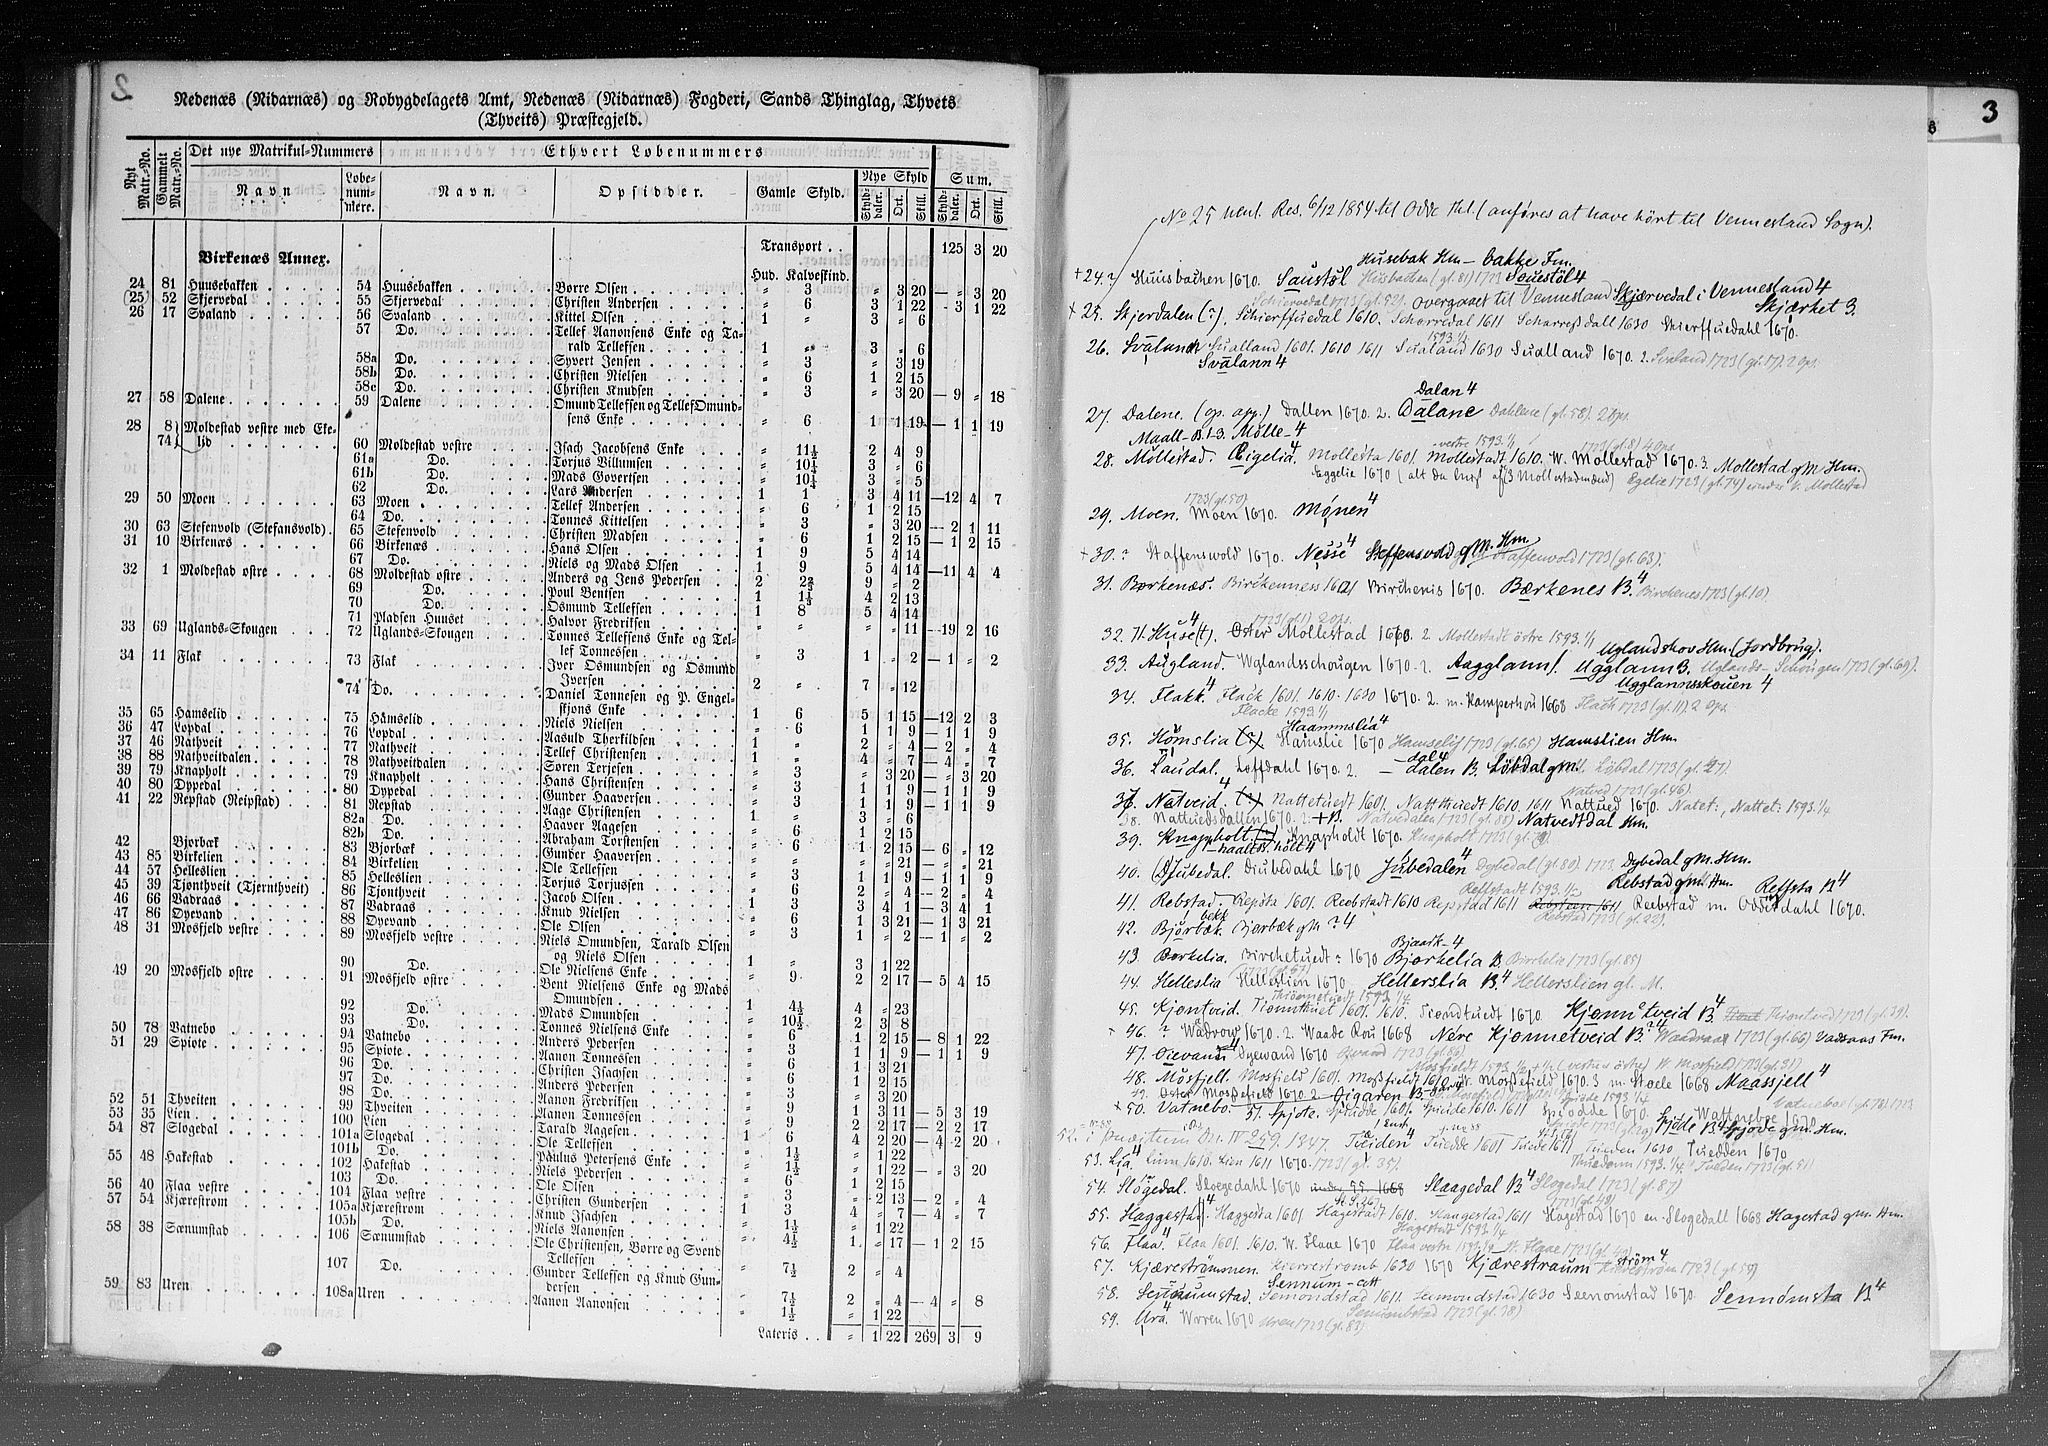 2
Nedenæs (Nidarnæs) og Robygdelagets Amt, Nedenæs (Nidarnæs) Fogderi, Sands Thinglag, Thvets
(Thveits) Præstegjeld.
Nyt Matr.-No.
Gammelt Matr.-No.
Det nye Matrikul-Nummers
Ethvert Løbenummers
Navn
Løbe-num-mere.
Navn.
Opsidder.
Gamle Skyld.
Nye Skyld
Sum.
Skyld-daler. Ort. Skill. Skyld-daler. Ort. Skill.
Transport . . 125 3 20
Birkenæs Annex.
Hud. Kalveskind.
24 81 Huusebakken 54 Huusebakken Børre Olsen " 3 " 3 20 — " 3 20
(25) 52 Skjervedal 55 Skjervedal Christen Andersen " 6 3 1 22 — 3 1 22
26 17 Svaland 56 Svaland Kittel Olsen 1 " 3 " 6
57 Do. Tellef Aanonsens Enke og Ta-
rald Tellefsen 1 " 3 " 6
58a Do. Syvert Jensen " 3 " 3 19
58b Do. Christen Nielsen " 6 1 2 15
58c Do. Christen Knudsen " 3 " 3 20 — 9 " 18
27 58 Dalene 59 Dalene Omund Tellefsen og Tellef Omund-
sens Enke " 6 1 1 19 — 1 1 19
28 8 Moldestad vestre med Eke-
74 lid 60 Moldestad vestre Isach Jacobsens Enke " 11½ 2 4 9
61a Do. Torjus Villumsen " 10¼ 3 " 6
61b Do. Mads Govertsen " 10¼ 3 " 5
62 Do. Lars Andersen 1 1 3 4 11 — 12 4 7
29 50 Moen 63 Moen Tellef Andersen " 6 1 2 15
64 Do. Tønnes Kittelsen " 3 " 3 20 — 2 1 11
30 63 Stefenvold (Stefansvold) 65 Stefenvold Christen Madsen " 6 1 2 15 — 1 2 15
31 10 Birkenæs 66 Birkenæs Hans Olsen 1 9 5 4 14
67 Do. Niels og Mads Olsen 1 9 5 4 14 — 11 4 4
32 1 Moldestad østre 68 Moldestad østre Anders og Jens Pedersen 2 2⅔ 9 " 2
69 Do. Poul Bentsen 1 1⅓ 4 2 13
70 Do. Osmund Tellefsen 1 8 5 4 14
71 Pladsen Huuset Halvor Fredriksen " " " " 11 — 19 2 16
33 69 Uglands-Skougen 72 Uglands-Skougen Tønnes Tellefsens Enke og Tel-
lef Tønnessen " 3 1 " 2 — 1 " 2
34 11 Flak 73 Flak Iver Osmundsen og Osmund
Iversen 2 " 7 " 12
74 Do. Daniel Tønnesen og P. Engel-
skjøns Enke 1 6 5 1 15 — 12 2 3
35 65 Hamselid 75 Hamselid Niels Nielsen " 6 1 1 9 — 1 1 9
36 47 Løpdal 76 Løpdal Aasuld Therkildsen 1 " 2 " 4 — 2 " 4
37 46 Nathveit 77 Nathveit Tellef Christensen 1 " 4 " 7 — 4 " 7
38 88 Nathveitdalen 78 Nathveitdalen Søren Terjesen " 3 " 3 20 — " 3 20
39 79 Knapholt 79 Knapholt Hans Christensen " 3 1 1 9 — 1 1 9
40 80 Dypedal 80 Dypedal Gunder Haaversen " 3 1 1 9 — 1 1 9
41 22 Repstad (Reipstad) 81 Repstad Aage Christensen 1 " 3 " 6
82a Do. Haaver Aagesen " 6 1 2 15
82b Do. Abraham Torstensen " 6 1 2 15 — 6 " 12
42 Bjorbæk 83 Bjorbæk Gunder Haaversen " " " " 21 — " " 21
43 85 Birkelien 84 Birkelien Ole Tellefsen " 3 1 1 9 — 1 1 9
44 57 Helleslien 85 Helleslien Torjus Torjussen " 6 2 " 4 — 2 " 4
45 39 Tjønthveit (Tjernthveit) 86 Tjonthveit Jacob Olsen 1 3 3 4 1 — 3 4 1
46 66 Vadraas 87 Vadraas Knud Nielsen " 6 1 3 21 — 1 3 21
47 86 Dyevand 88 Dyevand Ole Olsen " 3 1 " 2 — 1 " 2
48 31 Mosfjeld vestre 89 Mosfjeld vestre Niels Omundsen, Tarald Olsen
og Niels Olsen 1 " 3 1 22
90 Do. Ole Nielsens Enke " 9 2 2 17 — 5 4 15
49 20 Mosfjeld østre 91 Mosfjeld østre Bent Nielsens Enke og Mads
Omundsen 1 4½ 4 " 23
92 Do. Mads Omundsen " 10½ 2 3 8
93 Do. Tønnes Nielsens Enke " 6 1 2 15 — 8 1 22
50 78 Vatnebo 94 Vatnebo Anders Pedersen " 3 1 1 9 — 1 1 9
51 29 Spiote 95 Spiote Aanon Tønnessen " 6 1 3 21
96 Do. Christen Isachsen " 6 1 2 15
97 Do. Anders Pedersen " 3 " 3 20
98 Do. Aanon Fredriksen " 9 1 3 11 — 5 3 19
52 51 Thveiten 99 Thveiten Aanon Tønnessen " 9 2 2 17 — 2 2 17
53 35 Lien 100 Lien Tarald Aagesen 1 6 4 2 20 — 4 2 20
54 87 Slogedal 101a Slogedal Ole Tellefsen " 1½ " 1 22
101b Do. Paulus Petersens Enke " 1½ " 1 22 — " 3 20
55 48 Hakestad 102 Hakestad Niels Pedersen " 6 1 2 15
103 Do. Ole Olsen " 3 " 2 13 — 2 " 4
56 40 Flaa vestre 104 Flaa vestre Christen Gundersen 1 3 4 " 7 — 4 " 7
57 54 Kjærestrøm 105a Kjærestrøm Knud Isachsen " 1½ " 1 22
105b Do. Niels Aanonsen " 4½ 1 " 17 — 1 2 15
58 38 Sænumstad 106 Sænumstad Ole Christensen, Børre og Svend
Tellefsen " 7½ 2 " 4
107 Do. Gunder Tellefsen og Knud Gun-
dersen " 7½ 2 " 4 — 4 " 8
59 83 Uren 108a Uren Aanon Aanonsen " 1½ " 1 22
Lateris . . " 1 22 269 3 9
3
No 25 uent. Res. 6/12 1854 til Odde Thl. (anføres at have hørt til Vennesland Sogn).
Husebak Hm — bakke Fm.
+24.? Huusbachen 1670. Saustøl Husbachen (gl. 81) 1723 Sauestøl 4
Schiervedal 1723 (gl. 52). overgaaet til Vennesland Skjærvedal i Vennesland 4
Skjærket 3.
+25. Skjerdalen (?). Schierffuedal 1610. Schorredal 1611 Scharreßdall 1630 Skierffuedahl 1670.
1593.1/4
26. Svåland Sualland 1601. 1610 1611 Sualand 1630 Sualland 1670. 2. Svaland 1723 (gl. 17). 2 Ops.
Svålann 4
Dalan 4
27. Dalene. (op. app.) Dallen 1670. 2. Dalane Dahlene (gl. 58). 2 Ops.
Maall- B. 13. Mölle- 4
vestre 1593.1/1 1723 (gl. 8) 4 Ops.
28. Möllestad. Eigelia. 4 Mollesta 1601. Mollestadt 1610. W. Mollestad 1670. 3. Mollestad gM Hm.
Eggelie 1670 (alt da brugt af 3 Mollestadmænd) Egelie 1723 (gl. 74) under V. Mollestad
1723 (gl. 50)
29. Moen. Moen 1670. Mønen 4
+30.? Staffenswold 1670. Nesse 4 Steffensvold gM. Hm. Staffenvold 1723 (gl. 63).
31. Borkenæs. Birckenness 1601 Birchenis 1670. Bærkenes B. 4 Birchenes 1723 (gl. 10)
1723 (gl. 1) 2 ops.
32. H. Huse(t). Öster Mollestad 1670. 2 Mollestadt östre 1593.1/1
Uglandskov Hm. (Jordbrug).
33. Augland. Wglandsschougen 1670. 2. Aagglann/. Ugglann B. Uglands-Schougen 1723 (gl. 69).
Ugglannsskouen 4
34. Flakk 4 Flack 1601. 1610. 1630 1670. 2. m. Kamperhou 1668 Flach 1723 (gl. 11). 2 Ops.
Flacke 1593.1/1
Haammslia 4
35. Hömslia (?) Hamslie 1670 Hamselif 1723 (gl. 65) Hamslien Hm.
dal 4
36. Laudal. Loffdahl 1670. 2. — dalen B. Løbdal gM. Löbdal 1723 (gl. 47).
Natved 1723 (gl. 46).
37. Natveid. 4 (?) Nattetuedt 1601. Nattthuedt 1610. 1611 Nattued 1670. Natet:, Nattet: 1593.1/4
38. Nattuedsdallen 1670. 2. + B. Natvedalen 1723 (gl. 88) Natvedtdal Hm.
39. Knappholt. Knapholdt 1670. Knapholt 1723 (gl. 79).
haalt 3. hölt 4
40. Djubedal. Diubedahl 1670 Jubedalen 4 Dybedal (gl. 80). 1723 Dybedal gM Hm.
Reffstadt 1593.1/2 Rebstad gM. Hm. Reffsta B 4
41. Rebstad. Repsta 1601. Reebstadt 1610 Repstad 1611 Reebstad m. Odderdahl 1670.
Rebstad 1723 (gl. 22).
bekk
42. Björbæk. Bjerbæk gM ? 4
Bjaark- 4
43. Borkelia. Birchetuedt ? 1670 Bjorkelia B. Birchelia 1723 (gl. 85)
1723 (gl. 57)
44. Helleslia Helleslien 1670 Hellerslia B. 4 Hellerslien gl. M.
Thiömetuedt 1593.1/4
45. Kjontveid. Tiomthuet 1601. 1610. Tiomdtuedt 1670 Kjønn°tveid B. 4 Thiontved 1723 (gl. 39).
+46. ? Wadrow 1670. 2. Waade Rou 1668 Nere Kjonnetveid B. ? 4 Waadraas 1723 (gl. 66) Vadraas Fm.
47. Oievand 4 Dyewand 1670 Øvaand 1723 (gl. 86)
Mosfieldt 1593 (vestre, östre) W. Mosfield 1723 (gl. 31)
48. Mösfjell. Mosfield 1601. Moßfieldt 1610. Moßefield 1670. 3 m. Stoele 1668 Maassjell 4
49. Öster Moßefield 1670. 2 Oigaren B.
Spiöde 1593.1/4 Vatneboe (gl. 78). 1723
+50. Vatnebo. 51. Spjote. Spiodde 1601. Spiöde 1610. 1611 Spiodde 1670. Wattneboe 1670
Spiöde 1723 (gl. 29) Spjöde B 4 Spjøde gM. Hm.
52. i Dn. IV 259, 1347. Tueiden 4 Tuedde 1601 Tuede 1611 Tueden 1630 Tuedden 1670
Thuedenn 1593.1/4 Tueden 1723 (gl. 51)
53. Lia 4 Lium 1610. Lien 1611 1670. 1723 (gl. 35).
54. Slögedal. Sloegedahl 1670 under 55. 1668 Slaagedal B. 4 Slogedal 1723 (gl. 87)
1723 (gl. 48)
55. Haggestad. 4 Haggesta 1601 Hagestadt 1610. Haagestad 1611 Hagestad 1670 en Slogedall 1668 Hagestad gM. Hm.
Hagestadt 1593.1/4
56. Flaa. 4 Flaa 1601. 1610. W. Flaae 1670 Flaa vestre 1593.1/4 W. Flaae 1723 (gl. 40)
ström 4
57. Kjærestrommen. Kierrestromb 1630 1670 Kjærestraum Kierestrøm 1723 (gl. 54)
Sennum-ett
58. Sennumstad. Semondstad 1611. Semondstad 1630 Seenomstad 1670. Sennömsta B. 4
Sennumbstad 1723 (gl. 38)
59. Ura 4 Wrren 1670 Uren 1723 (gl. 83)